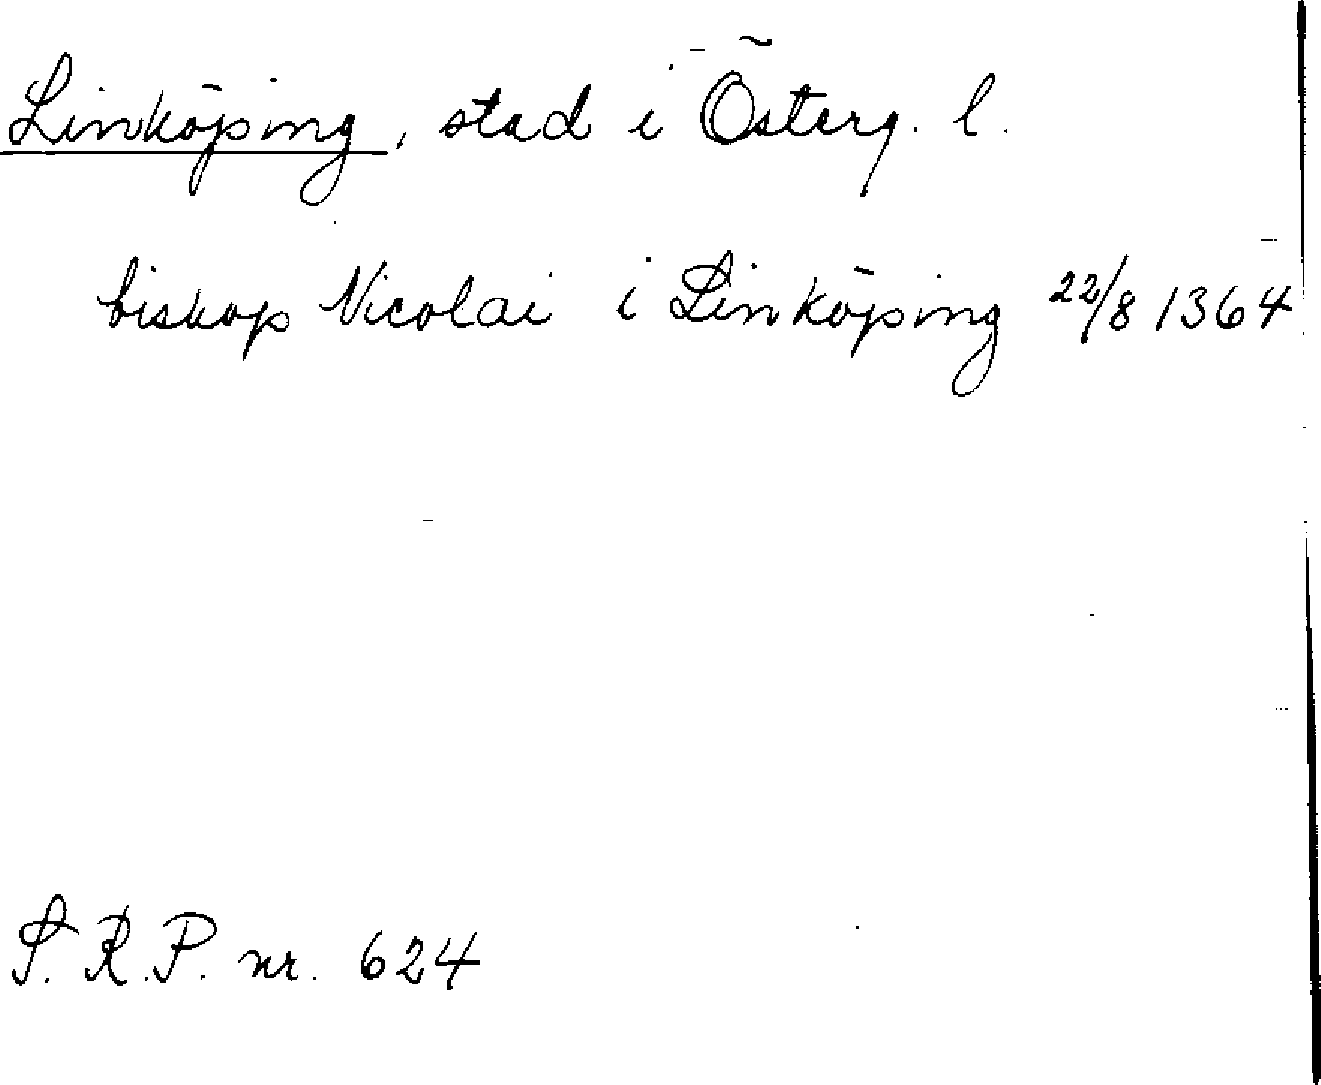 Linköping, stad i Österg. l.
biskop Nicolai i Linköping 22/8 1364
S.R.P. nr. 624